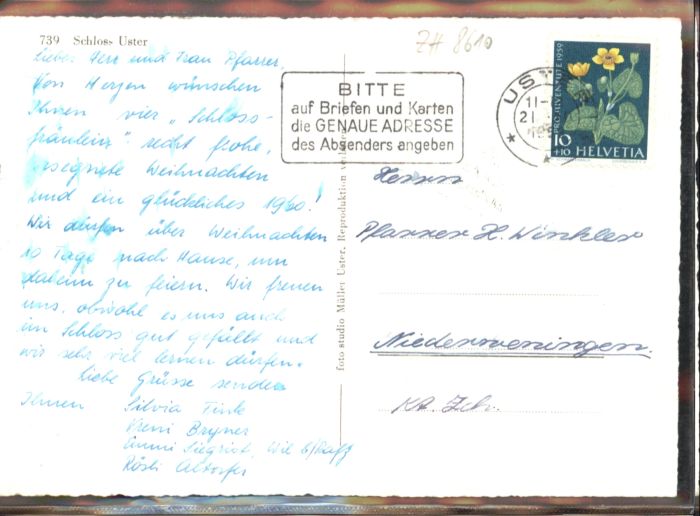 739 Schloss Uster
Liebe Herr und Frau Pfarrer,
Von Herzen wünschen
Ihnen vier „Schloss-
fräulein" recht frohe,
gesegnete Weihnachten
und ein glückliches 1960!
Wir dürfen über Weihnachten
10 Tage nach Hause, um
daheim zu feiern. Wir freuen
uns, obwohl es uns auch
im Schloss gut gefällt und
wir sehr viel lernen dürfen.
Liebe Grüsse senden
Ihnen Silvia Fink
Vreni Bryner
Emmi Siegrist, Wil b/Rafz
Rösli Altorfer
foto studio Müller Uster. Reproduktion
ZH 8610
BITTE
auf Briefen und Karten
die GENAUE ADRESSE
des Absenders angeben
UST
11-
21.
PRO JUVENTUTE 1959
10
+10 HELVETIA
Herrn
Pfarrer H. Winkler
Niederweningen.
Kt. Zch.